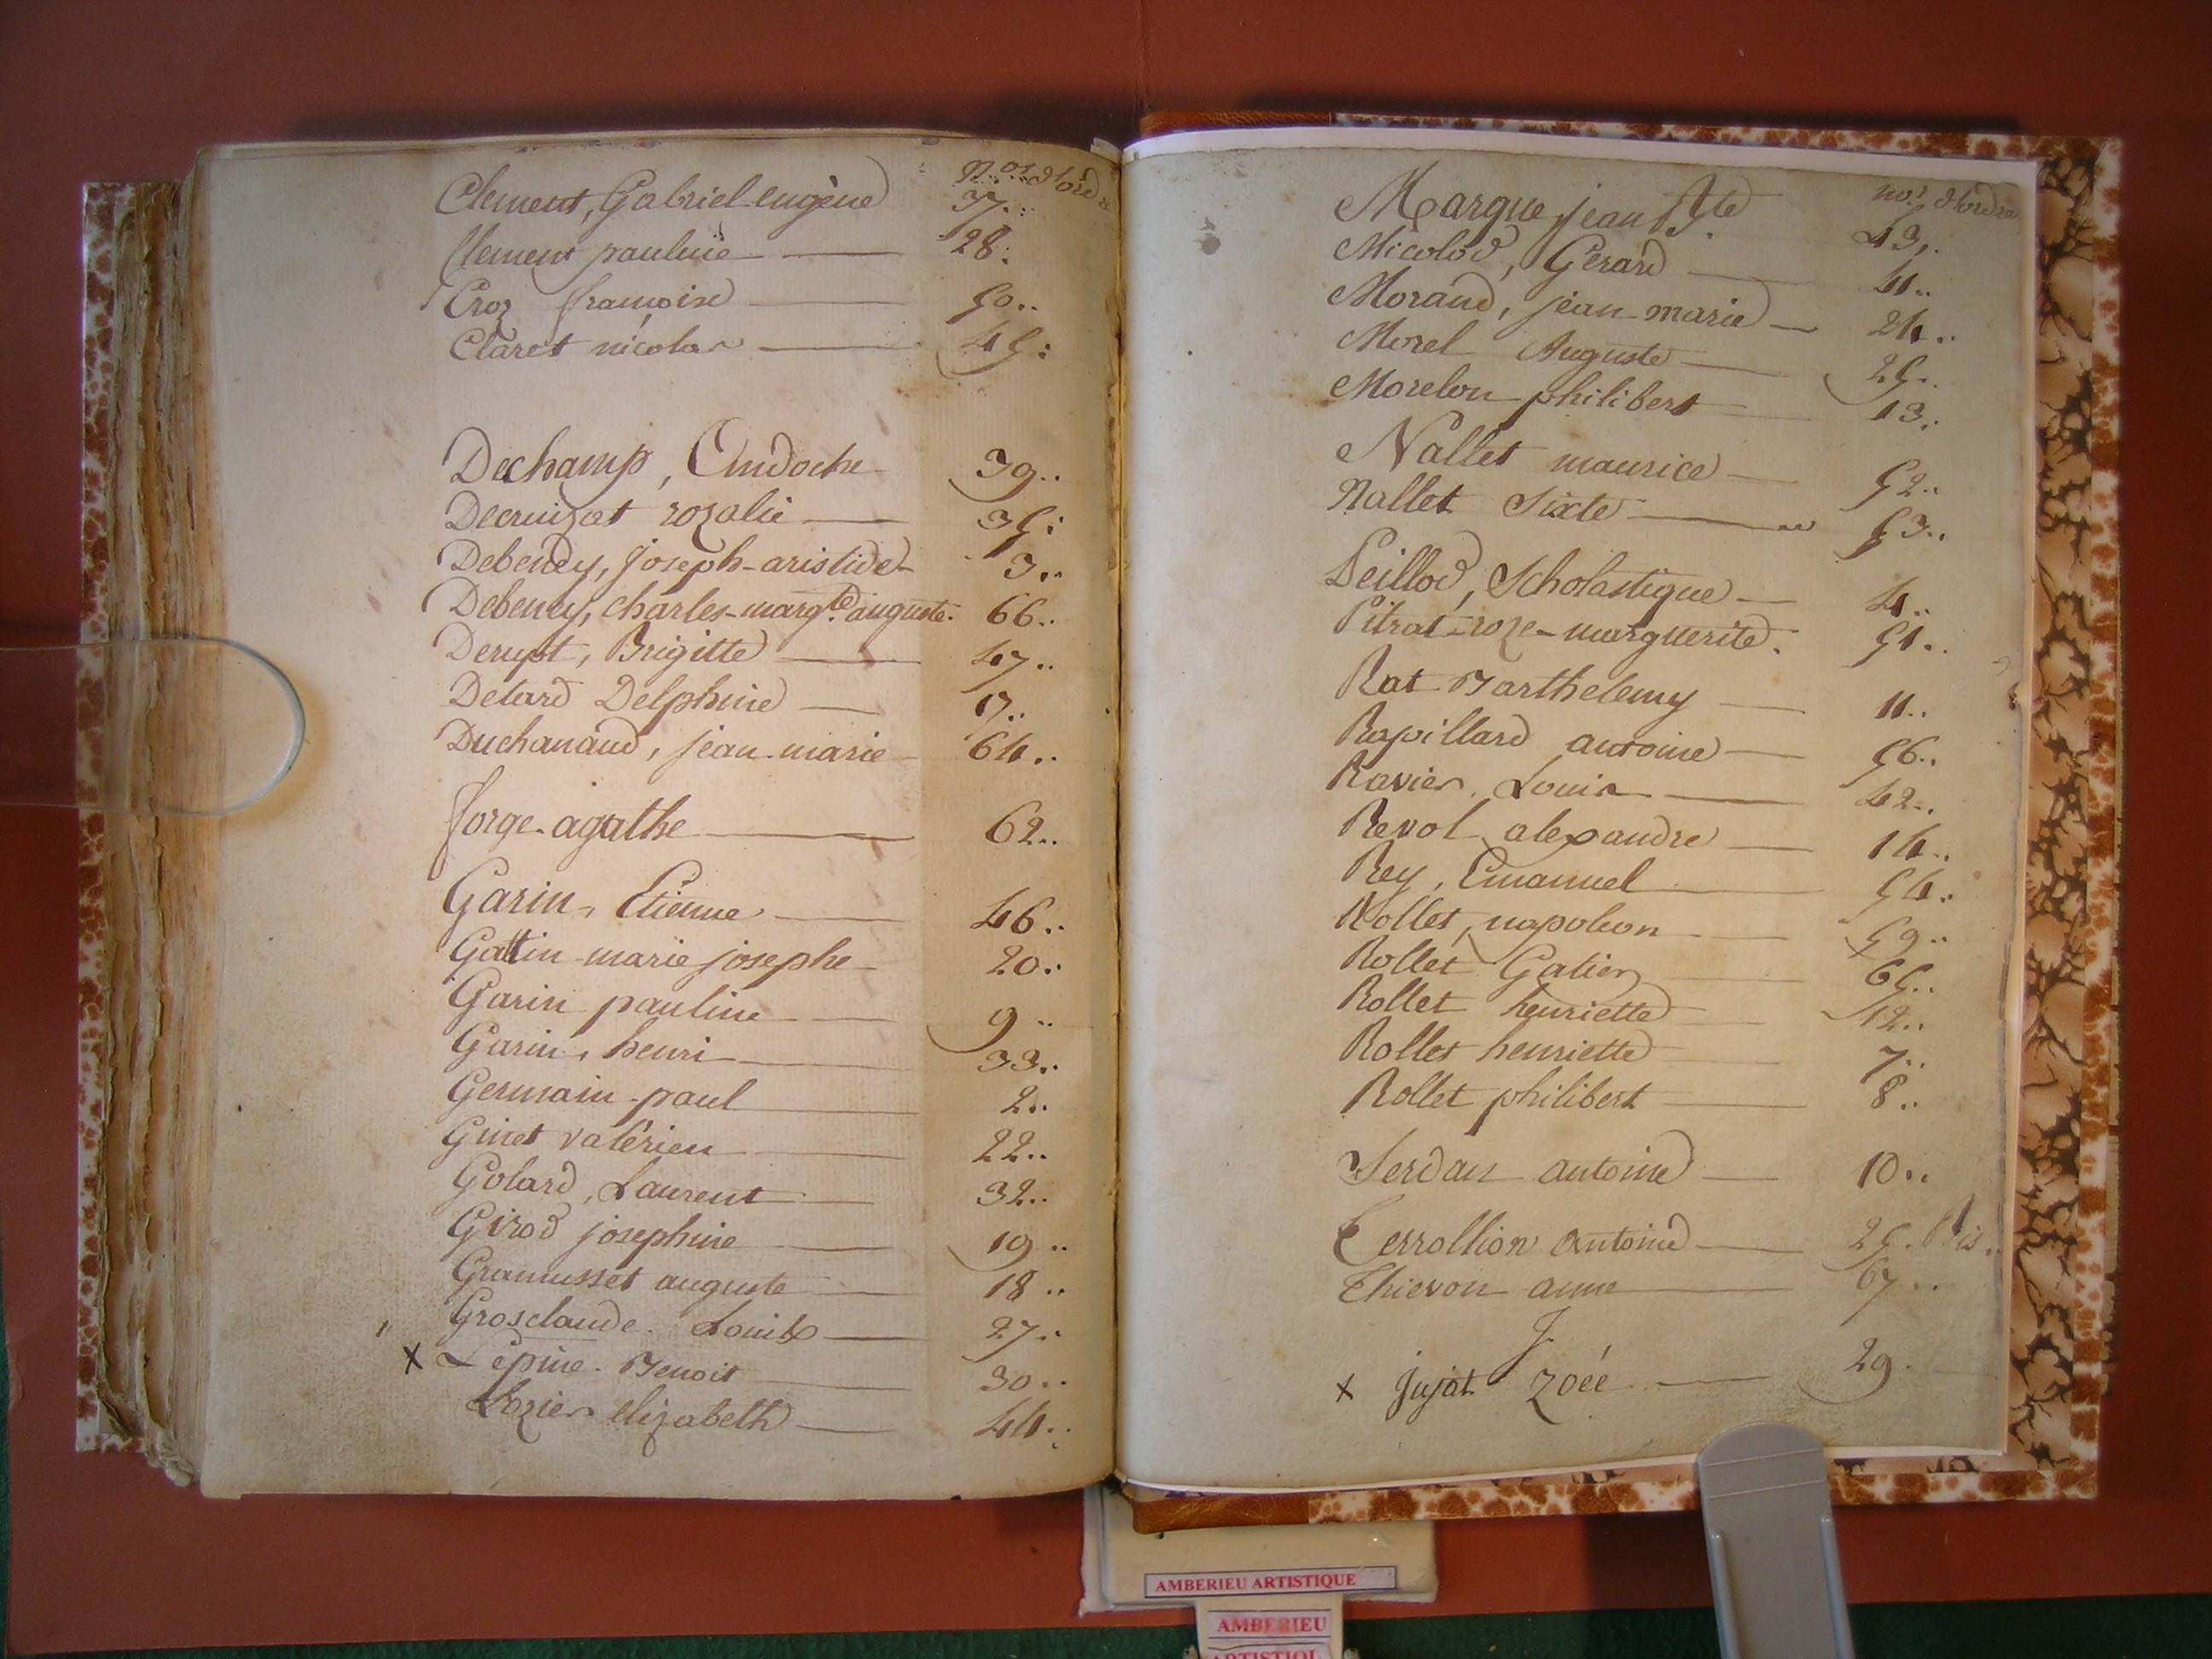 N.os d'ordre
Clement, Gabriel-eugène 37..
Clement pauline 28.
Croz françoise 50..
Claret nicolas 45.
Dechamp, Andoche 39..
Decruizat rozalie 35.
Debeney, Joseph-aristide 3..
Debeney, Charles-margte. auguste. 66..
Derupt, Brigitte 47..
Detard Delphine 17..
Duchanaud, jean-marie 64..
forge-agathe 62..
Garin, Etienne 46..
Gattin-marie josephe 20.
Garin pauline 9..
Garin, henri 33..
Germain-paul 2..
Ginet valérien 22..
Golard, Laurent 32..
Girod josephine 19..
Gramusset auguste 18..
Grosclaude. Louis 27..
x Lépine. Benoit 30..
Lozier elizabeth 44..
nos. d'ordre
Marque, jean Bte 43..
Micolod, Gérard 41..
Morand, jean-marie 24..
Morel Auguste 25..
Morelon philibert 13..
Nallet maurice 52..
Nallet Sixte 53..
Peillod, Scholastique 4..
Pitrat-roze-marguerite. 51..
Rat Barthelemy 11..
Rapillard antoine 56..
Ravier, Louis 42..
Revol alexandre 14..
Rey, Emanuel 54.
Rollet, napoleon 59..
Rollet Galien 65..
Rollet henriette 12..
Rollet henriette 7..
Rollet philibert 8..
Serdan antoine 10..
Terrollion Antoine 25. Bis.
Thievon anne 67..
J.
x Jujat Zoée 29.
AMBERIEU ARTISTIQUE
AMBERIEU